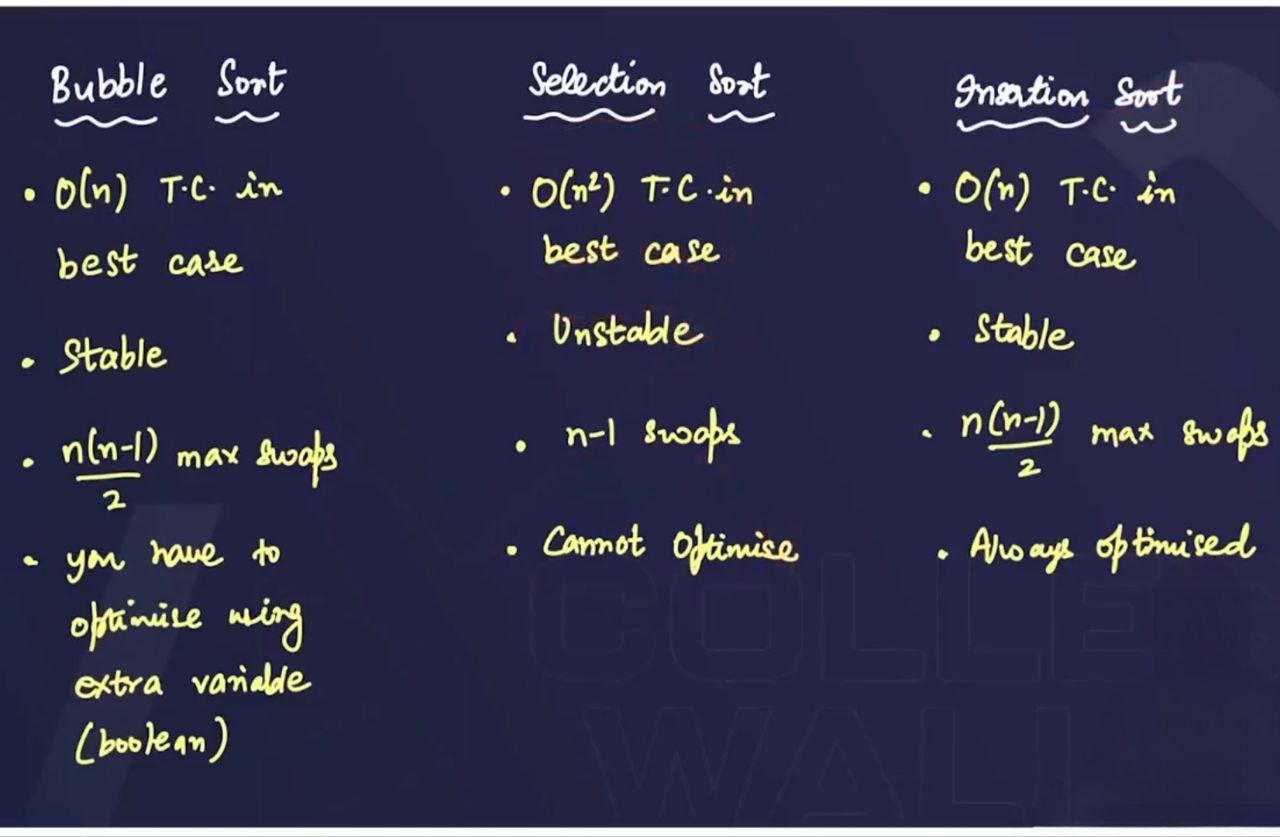 Bubble Sort
• O(n) T.C. in
best case
• Stable
• n(n-1)/2 max swaps
• you have to
optimise using
extra variable
(boolean)
Selection Sort
• O(n²) T.C. in
best case
• Unstable
• n-1 swaps
• Cannot Optimise
Insertion Sort
• O(n) T.C. in
best case
• Stable
• n(n-1)/2 max swaps
• Always optimised
COLLE
WALL